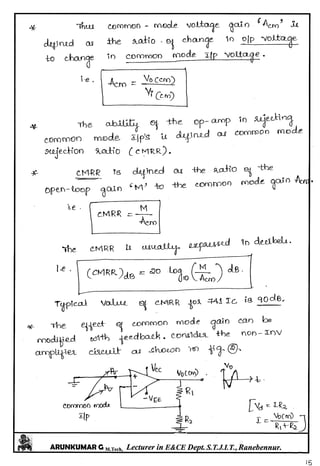 * Thus common-mode voltage gain 'Acm' is
defined as the ratio of change in o/p voltage
to change in common mode I/p voltage.
i.e. Acm = Vo(cm) / Vi(cm)
* The ability of the op-amp in rejecting
common mode I/p's is defined as common mode
rejection ratio (CMRR).
* CMRR is defined as the ratio of the
open-loop gain 'M' to the common mode gain Acm.
i.e. CMRR = M / Acm
The CMRR is usually expressed in decibels.
i.e. (CMRR)dB = 20 log10 (M / Acm) dB.
Typical value of CMRR for 741 IC is 90dB.
* The effect of common mode gain can be
modified with feedback. consider the non-Inv
amplifier circuit as shown in fig.
VCC
Vo(cm)
Vo
t
-VEE
R1
common mode
I/p
R2
[Vd = I.R2
I = Vo(cm) / R1+R2]
ARUNKUMAR G M.Tech, Lecturer in E&CE Dept. S.T.J.I.T., Ranebennur.
15